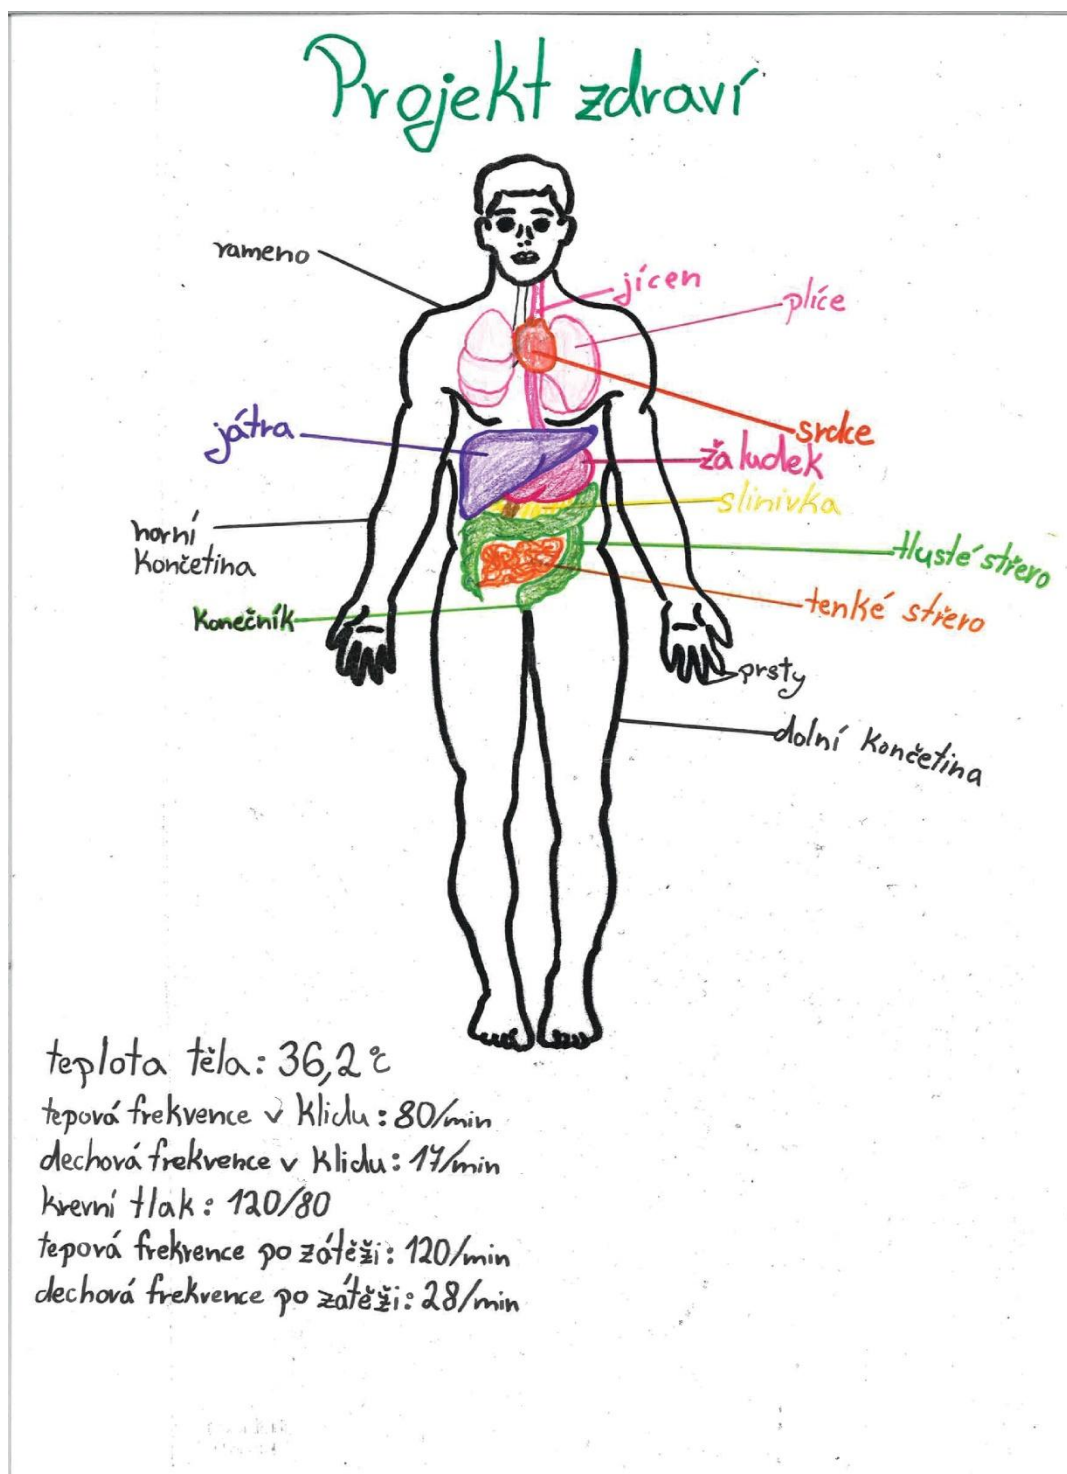 Projekt zdraví
rameno
jícen
plíce
játra
srdce
žaludek
slinivka
horní
Končetina
tlusté střevo
Konečník
tenké střevo
prsty
dolní Končetina
teplota těla: 36,2°C
tepová frekvence v Klidu: 80/min
dechová frekvence v Klidu: 17/min
krevní tlak: 120/80
tepová frekvence po zátěži: 120/min
dechová frekvence po zátěži: 28/min